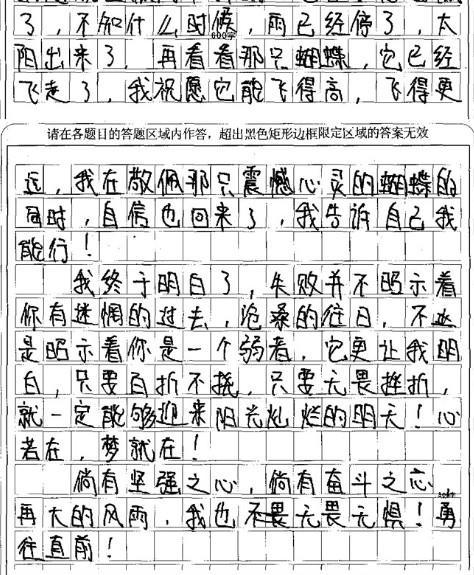 了，不知什么时候，雨已经停了，太
600字
阳出来了，再看看那只蝴蝶，它已经
飞走了，我祝愿它能飞得高，飞得更
请在各题目的答题区域内作答，超出黑色矩形边框限定区域的答案无效
远，我在敬佩那只震憾心灵的蝴蝶的
同时，自信也回来了，我告诉自己我
能行！
我终于明白了，失败并不昭示着
你有迷惘的过去，沧桑的往日，不
是昭示着你是一个弱者，它更让我明
白，只要百折不挠，只要无畏挫折，
就一定能够迎来阳光灿烂的明天！心
若在，梦就在！
倘有坚强之心，倘有奋斗之心
再大的风雨，我也不畏无畏无惧！勇
往直前！